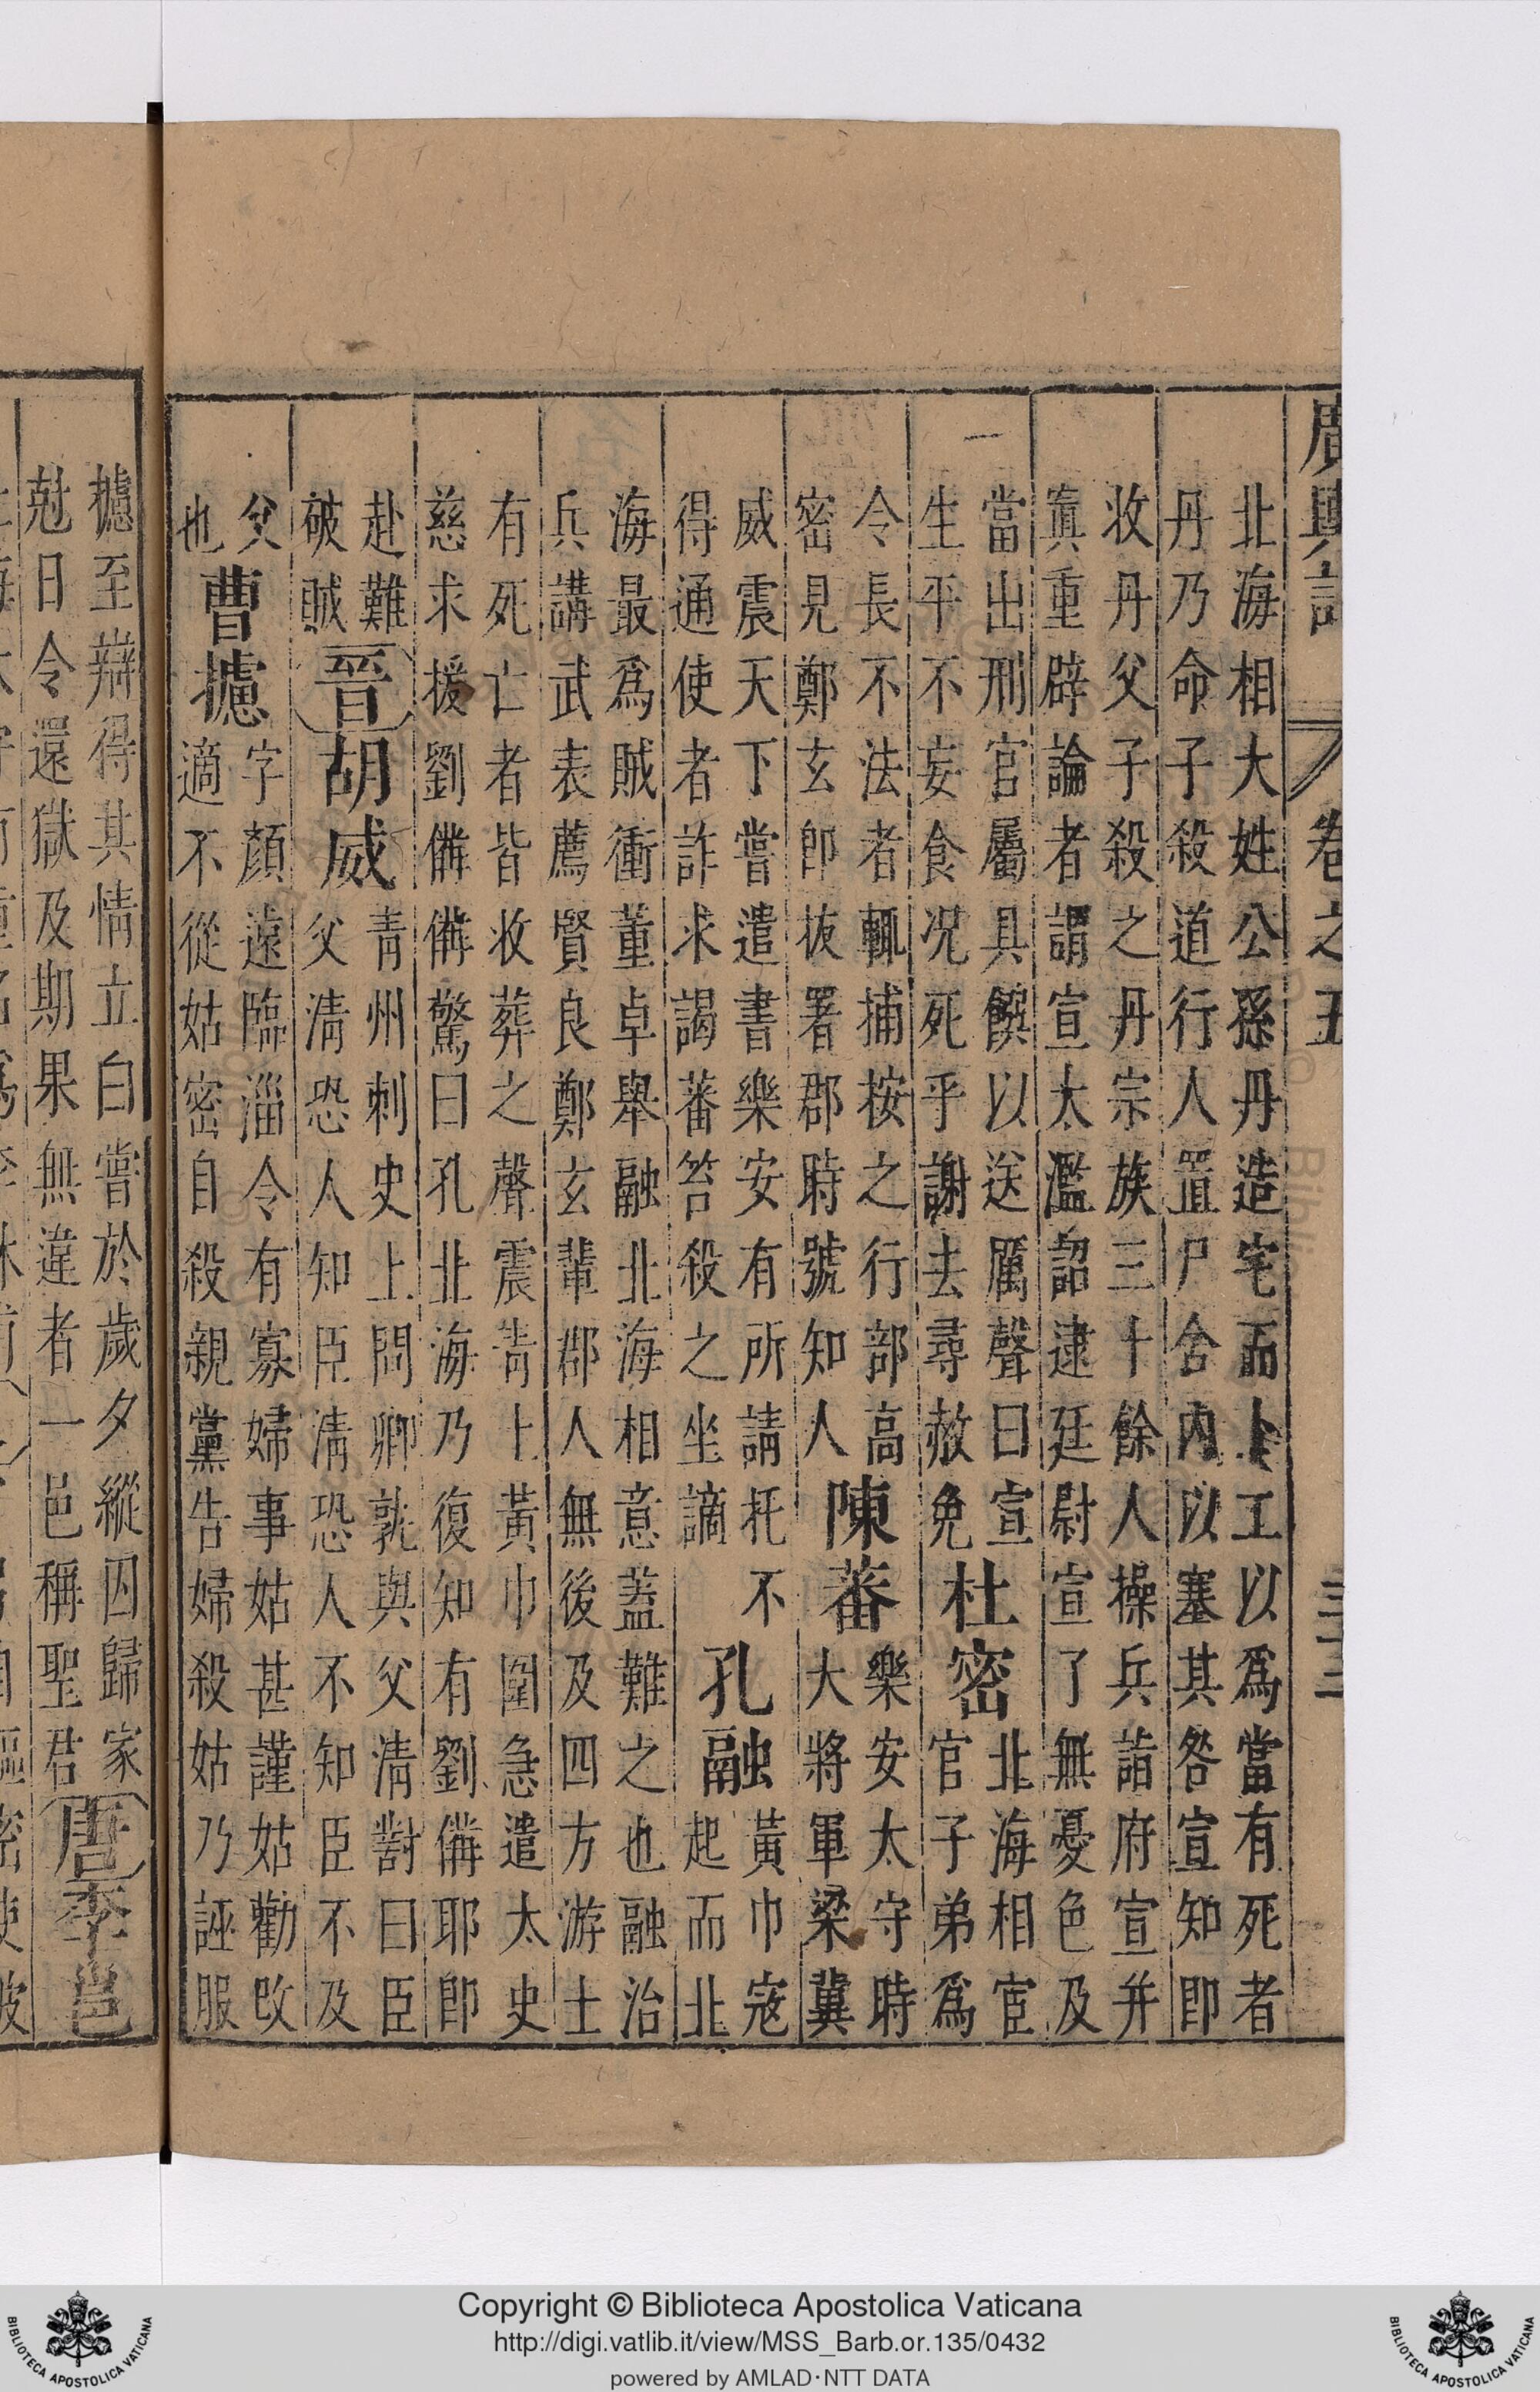 廣輿記 卷之五 三十三
北海相大姓公孫丹造宅而卜工以為當有死者
丹乃命子殺道行人置尸舍內以塞其咎宣知即
收丹父子殺之丹宗族三十餘人操兵詣府宣并
寘重辟論者謂宣太濫詔逮廷尉宣了無憂色及
當出刑官屬具饌以送厲聲曰宣
生平不妄食况死乎謝去尋赦免
杜密
北海相宦
官子弟為
令長不法者輒捕按之行部高
密見鄭玄卽拔署郡時號知人
陳蕃
樂安太守時
大將軍梁冀
威震天下嘗遣書樂安有所請托不
得通使者詐求謁蕃笞殺之坐謫
孔融
黃巾寇
起而北
海最為賊衝董卓舉融北海相意蓋難之也融治
兵講武表薦賢良鄭玄輩郡人無後及四方游士
有死亡者皆收葬之聲震青土黃巾圍急遣太史
慈求援劉備備驚曰孔北海乃復知有劉備耶卽
赴難
破賊
晉
胡威
青州刺史上問卿孰與父清對曰臣
父清恐人知臣清恐人不知臣不及
父
也
曹攄
字顏遠臨淄令有寡婦事姑甚謹姑勸改
適不從姑密自殺親黨告婦殺姑乃誣服
攄至辯得其情立白嘗於歲夕縱囚歸家
尅日令還獄及期果無違者一邑稱聖君
唐
李邕
Copyright © Biblioteca Apostolica Vaticana
http://digi.vatlib.it/view/MSS_Barb.or.135/0432
powered by AMLAD·NTT DATA
BIBLIOTECA APOSTOLICA VATICANA
BIBLIOTECA APOSTOLICA VATICANA